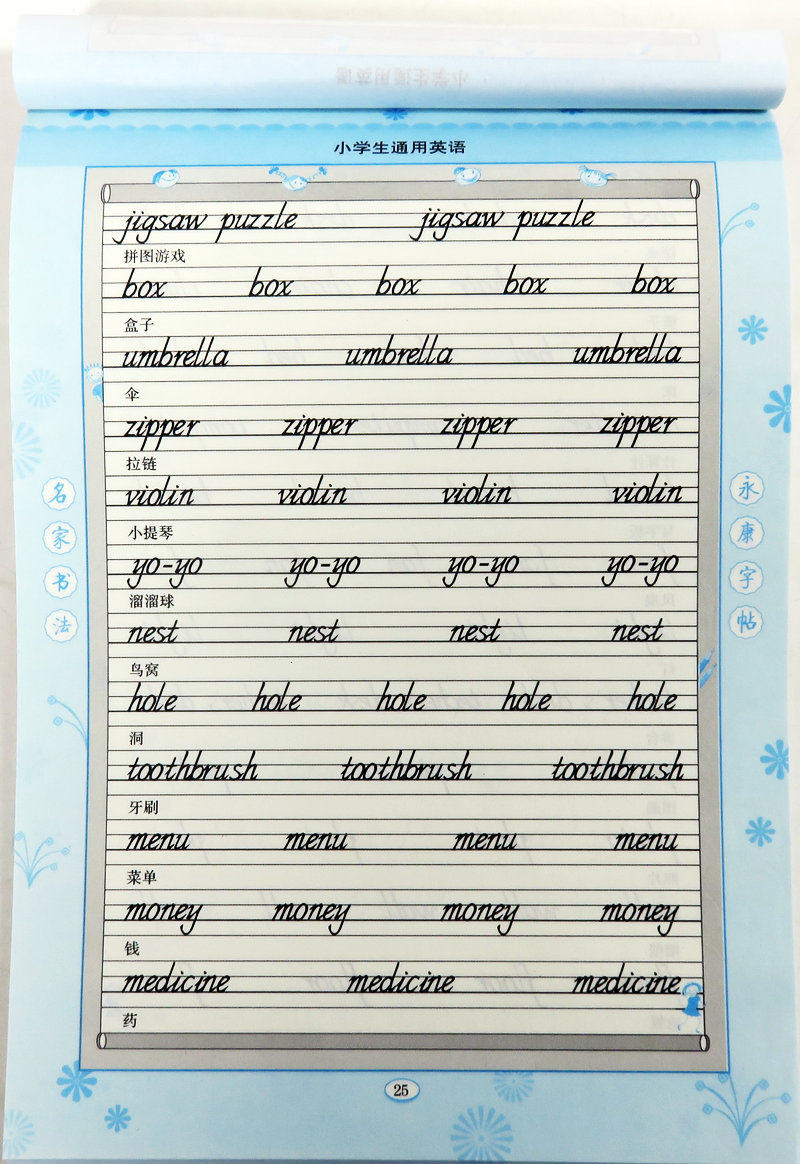 小学生通用英语
jigsaw puzzle jigsaw puzzle
拼图游戏
box box box box box
盒子
umbrella umbrella umbrella
伞
zipper zipper zipper zipper
拉链
violin violin violin violin
小提琴
yo-yo yo-yo yo-yo yo-yo
溜溜球
nest nest nest nest
鸟窝
hole hole hole hole hole
洞
toothbrush toothbrush toothbrush
牙刷
menu menu menu menu
菜单
money money money money
钱
medicine medicine medicine
药
名家书法
永康字帖
25